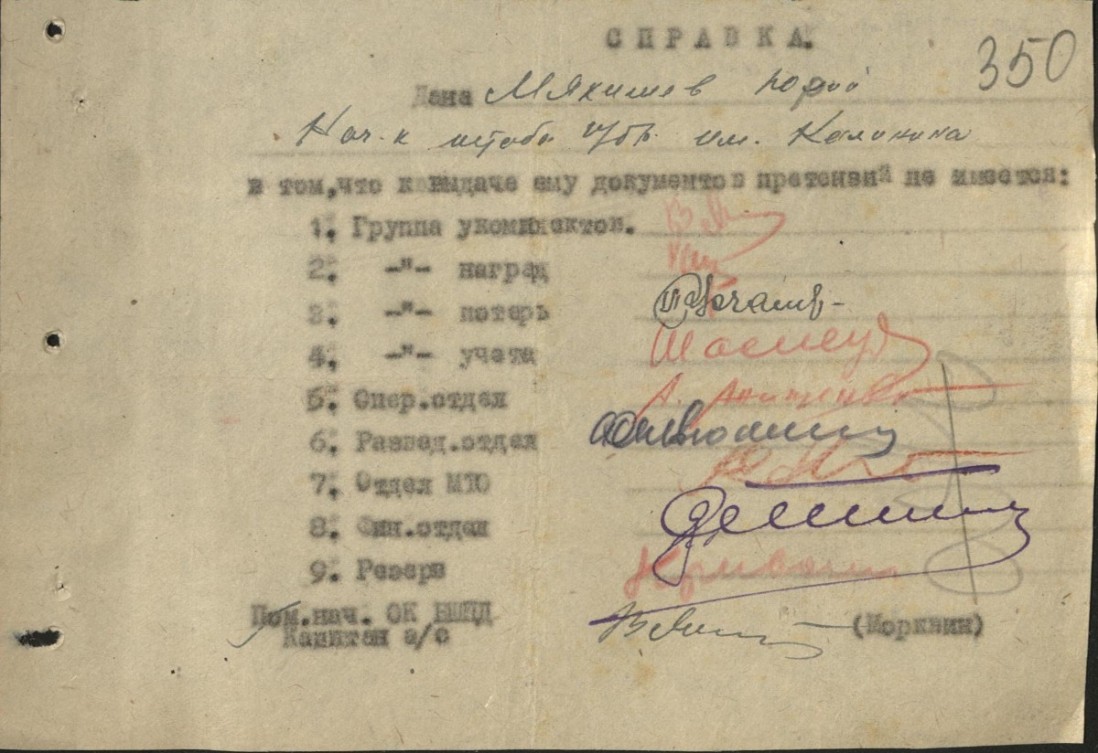 СПРАВКА.
350
Дана Мякишев Юрий
Нач-к штаба 17бр. им. Калинина
в том,что к выдаче ему документов претензий не имеется:
1. Группа укомплектов.
2. -"- наград
3. -"- потерь
4. -"- учета
5. Опер.отдел
6. Развед.отдел
7. Отдел МТО
8. Фин.отдел
9. Резерв
Пом.нач. ОК БШПД
Капитан а/с (Морквин)